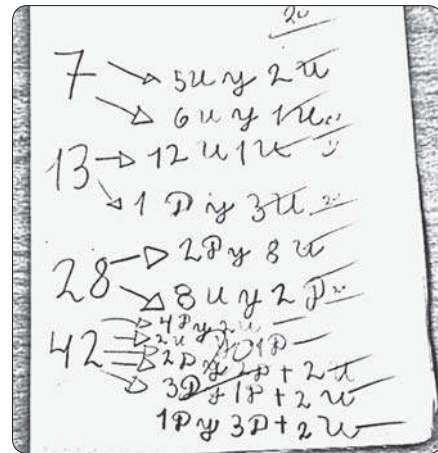 7 → 5u y 2u
→ 6u y 1u
13 → 12u 1u
→ 1D y 3u
28 → 2D y 8u
→ 8u y 2D
42 → 4D y 2u
→ 2u y 1D
→ 2D y 2D + 2u
→ 3D y 1D + 2u
1D y 3D + 2u